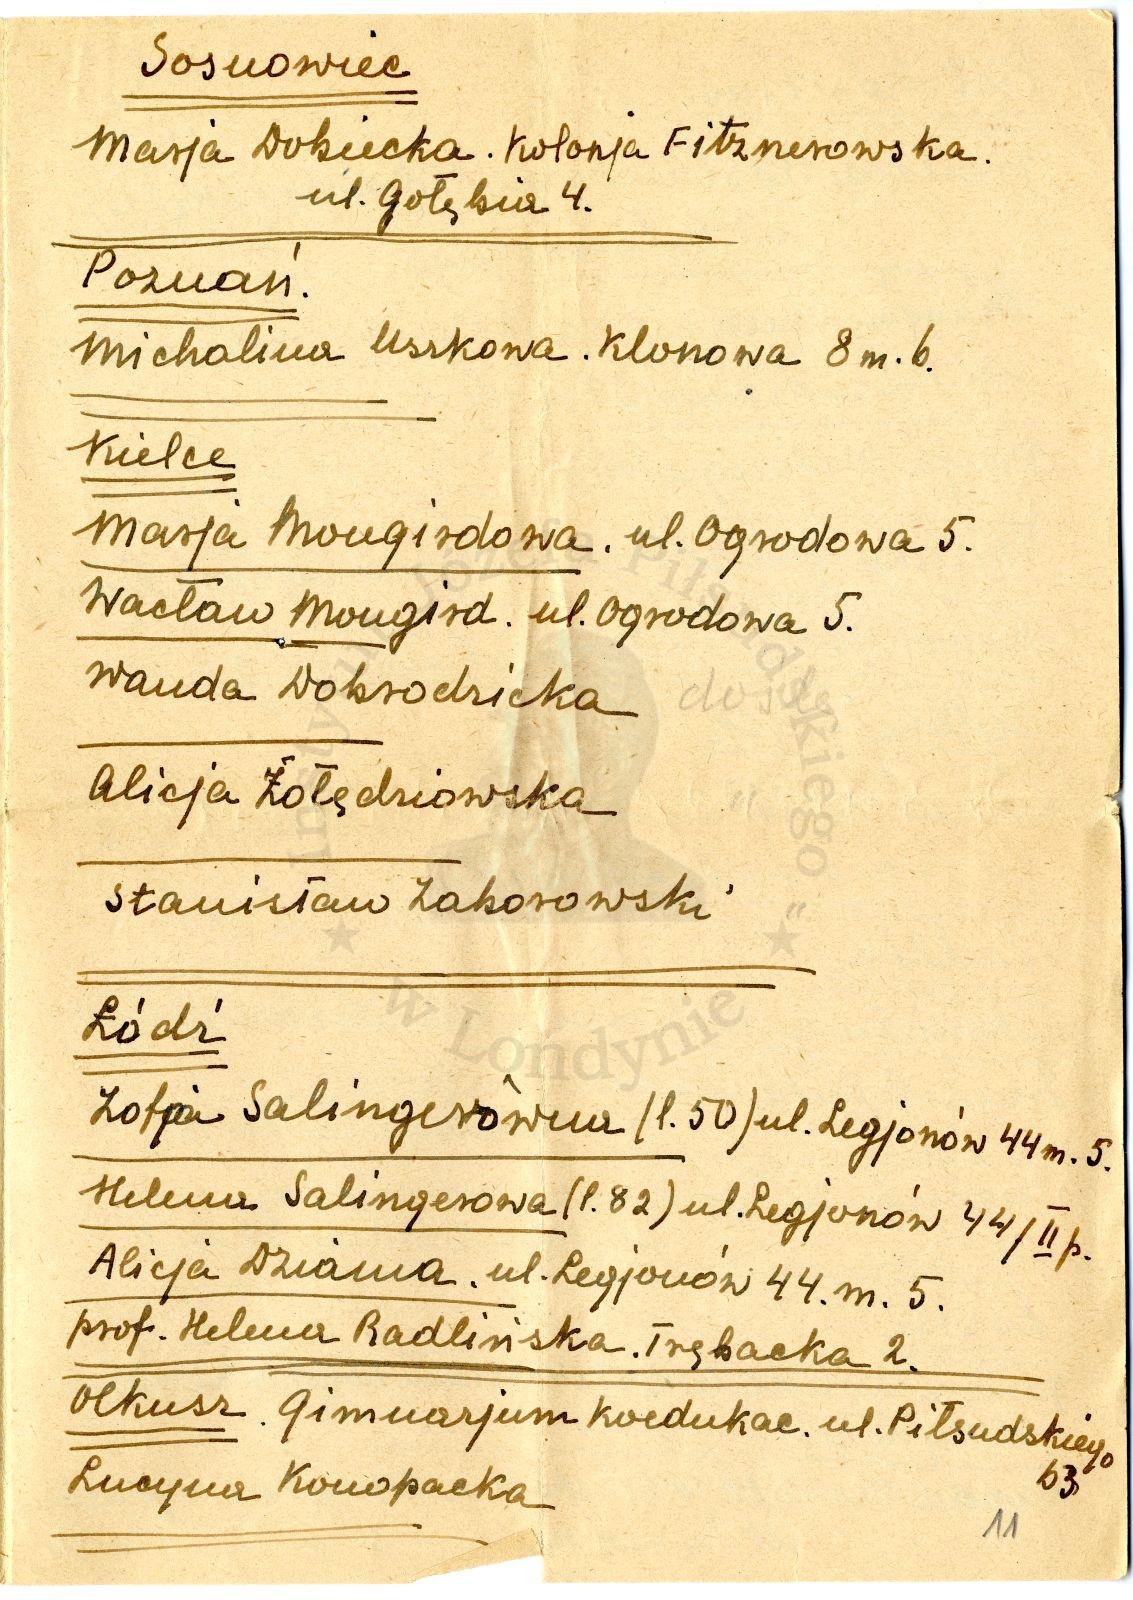 Sosnowiec
Marja Dobiecka. Kolonja Fitznerowska.
ul. Gołębia 4.
Poznań.
Michalina Uszkowa. Klonowa 8 m. 6.
Kielce
Marja Mongirdowa. ul. Ogrodowa 5.
Wacław Mongird. ul. Ogrodowa 5.
Wanda Dobrodzicka
Alicja Żołędziowska
Stanisław Zaborowski
Łódź
Zofja Salingerówna (l. 50) ul. Legjonów 44 m. 5.
Helena Salingerowa (l. 82) ul. Legjonów 44/II p.
Alicja Dziama. ul. Legjonów 44. m. 5.
prof. Helena Radlińska. Trębacka 2.
Olkusz. Gimnazjum koedukac. ul. Piłsudskiego
63
Lucyna Konopacka
11
Józefa Piłsudskiego
w Londynie